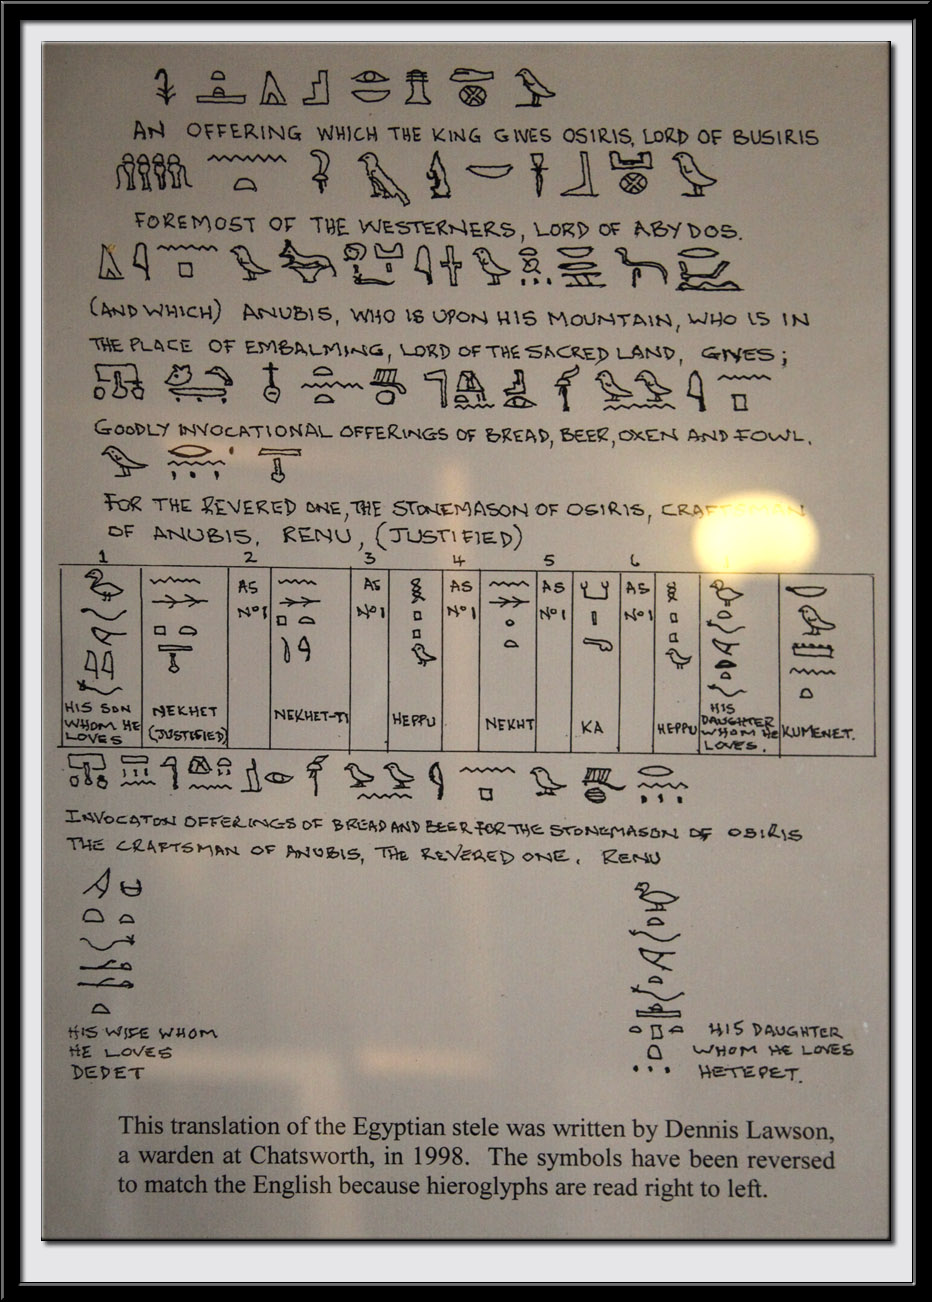 AN OFFERING WHICH THE KING GIVES OSIRIS, LORD OF BUSIRIS
FOREMOST OF THE WESTERNERS, LORD OF ABYDOS.
(AND WHICH) ANUBIS, WHO IS UPON HIS MOUNTAIN, WHO IS IN
THE PLACE OF EMBALMING, LORD OF THE SACRED LAND, GIVES;
GOODLY INVOCATIONAL OFFERINGS OF BREAD, BEER, OXEN AND FOWL.
FOR THE REVERED ONE, THE STONEMASON OF OSIRIS, CRAFTSMAN
OF ANUBIS, RENU, (JUSTIFIED)
1 2 3 4 5 6
AS AS AS AS AS
Nº1 Nº1 Nº1 Nº1 Nº1
HIS SON WHOM HE LOVES
NEKHET (JUSTIFIED)
NEKHET-TI
HEPPU
NEKHT
KA
HEPPU
HIS DAUGHTER WHOM HE LOVES.
KUMENET.
INVOCATON OFFERINGS OF BREAD AND BEER FOR THE STONEMASON OF OSIRIS
THE CRAFTSMAN OF ANUBIS, THE REVERED ONE. RENU
HIS WIFE WHOM
HE LOVES
DEDET
HIS DAUGHTER
WHOM HE LOVES
HETEPET.
This translation of the Egyptian stele was written by Dennis Lawson,
a warden at Chatsworth, in 1998. The symbols have been reversed
to match the English because hieroglyphs are read right to left.